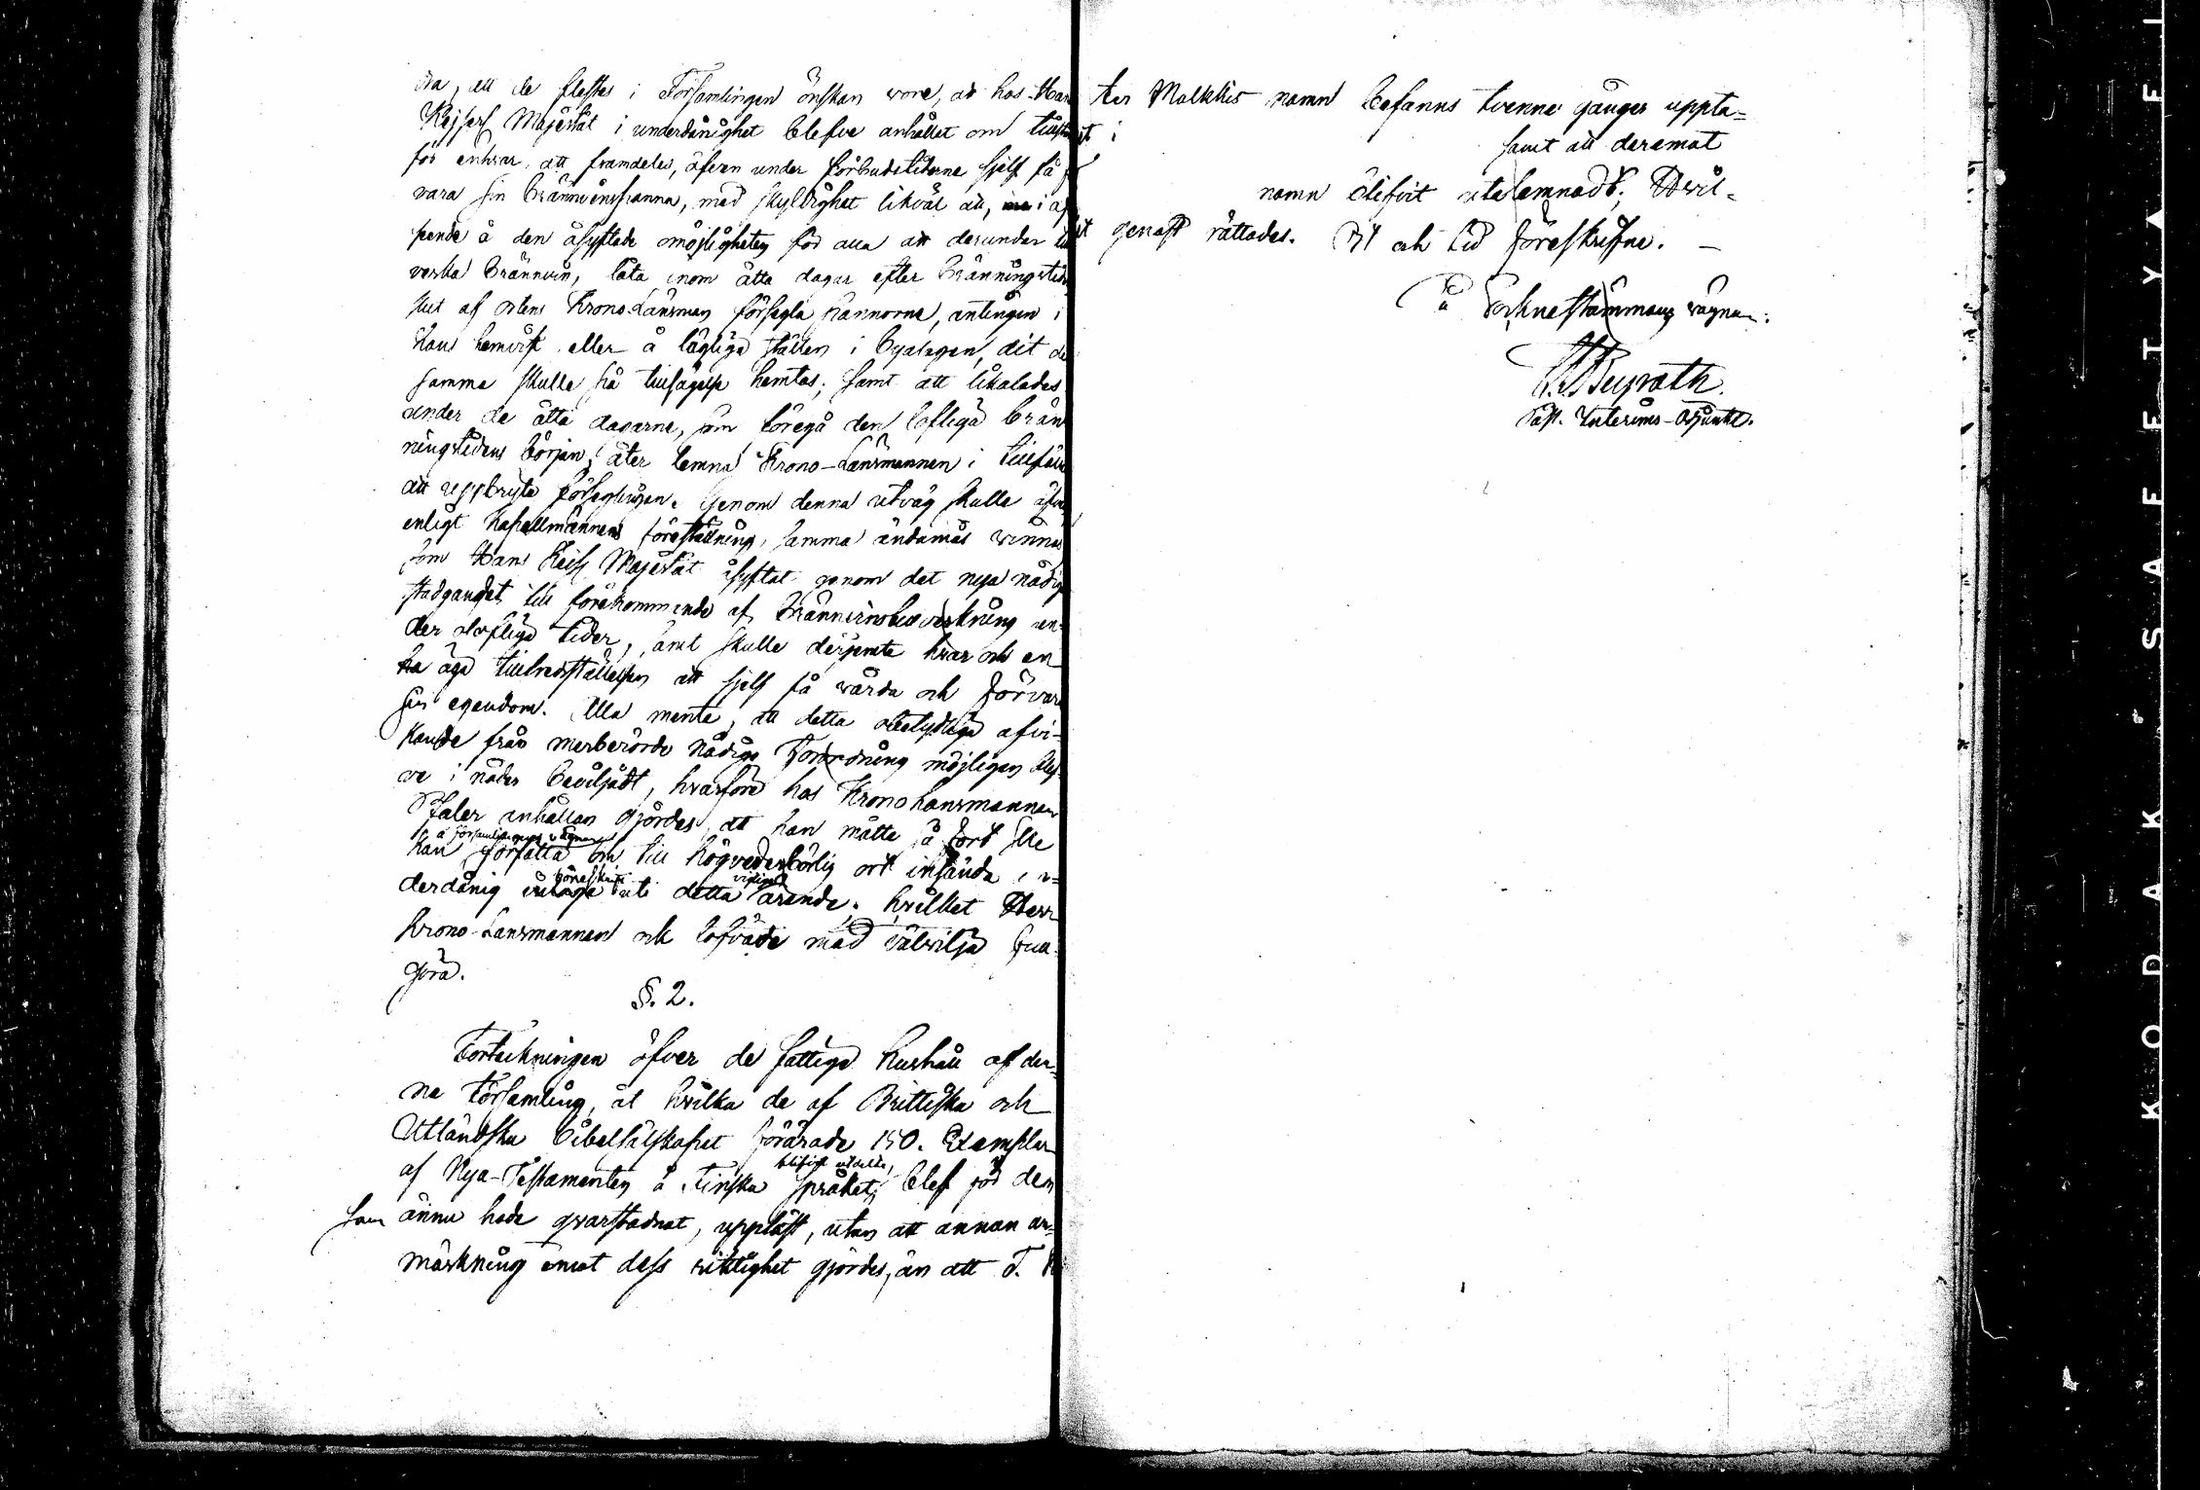 da, att de flestes i Församlingen önskan wore, att hos Hans
Kejserl Majestät i underdånighet blefve anhållet om tillstånd
för enhvar, att framdeles, äfven under förbudstiderna sjelf få
vara sin brännvinspanna, med skyldighet likväl att, i
seende å den åsyftade omöjligheten för alla att derunder
verka brännvin, låta inom åtta dagar efter bränningstidens
slut af ortens Krono-Länsman försegla pannorne, antingen i
hans hemvist eller å lägliga ställen i byalagen, dit de
samma skulle på tillsägelse hemtas; samt att likaledes
under de åtta dagarne, som föregå den lofliga brän
ningstidens början, åter lemna Krono-Länsmannen i tillfälle
att uppbryta förseglingen. Genom denna utväg skulle äfven
enligt Kapellmännens föreställning, samma ändamål winnas
som Hans Keis. Majestät åsyftat genom det nya nådiga
stadgandet till förekommande af Brännvinstillverkning un-
der olofliga tider, samt skulle derjemte hvar och en
äga tillfredsställelsen att sjelf få wårda och förvara
sin egendom. Alla mente, att detta obetydliga afvi-
kande från merberörde Nådiga Förordning möjligen blef-
ve i nåder beviljadt, hvarföre hos Krono Länsmannen
anhållan gjordes, att han måtte så fort ske
å församlingens vägnar
kan författa och till högvederbörlig ort insända un-
böneskrift
derdånig uti detta ärende; hvilket Herr
Krono-Länsmannen ock lofvade med välvilja full-
göra.
§. 2.
Förteckningen öfver de fattiga hushåll af den-
na Församling, åt hvilka de af Brittiska och
Utländska bibelsälskapet förärade 150. Exemplar
blifvit utdelte,
af Nya-Testamenten å Finska språket, blef för dem
som ännu hade qvarstadnat, uppläst, utan att annan an-
märkning emot dess riktighet gjordes, än att T.
ters Malkkis namn befanns tvenne gånger uppta-
git i
samt att deremot
namn blifvit utelemnadt; Hvil-
ket genast rättades. Ort och tid föreskrifne. —
På Socknestämmans vägnar:
Beyrath.
Past. Interims-Adjunkt.